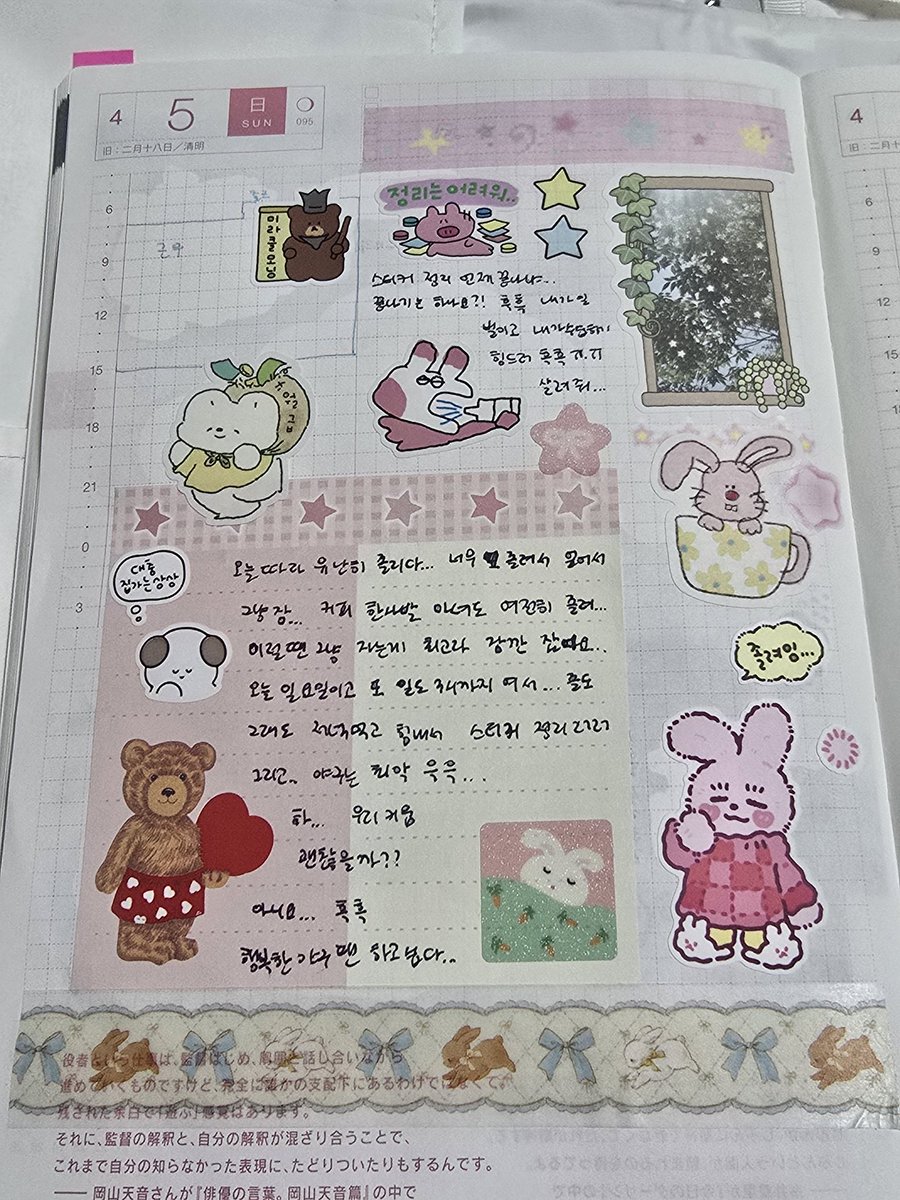 4 5 日 SUN 095
4
旧：二月十八日／清明
旧：二月十
6
9
12
15
18
21
0
3
6
9
12
근무
미라클모닝
정리는 어려워..
스티커 정리 언제 끝나냐...
끝나기는 하나요?! 흑흑 내가 일
벌이고 내가 수습하기
힘드러 흑흑 ㅠ.ㅠ
살려줘...
월급
대충
집가는 상상
오늘따라 유난히 졸리다... 너무 졸려서
그냥 잠... 커피 한사발 마셔도 여전히 졸려...
이럴땐 그냥 자는게 최고라 잠깐 잤따요..
오늘 일요일이고 또 일도 해서... 졸도
그래도 저녁먹고 힘내서 스티커 정리
그리고.. 야구는 최악 윽윽...
하... 우리 키움
괜찮을까??
아니요... 흑흑
행복한 야구 하고싶다..
졸려잉...
役者という仕事は、監督はじめ、周囲と話し合いながら
進めていくものですけど、完全に誰かの支配下にあるわけではなくて。
残された余白で「遊ぶ」感覚はあります。
それに、監督の解釈と、自分の解釈が混ざり合うことで、
これまで自分の知らなかった表現に、たどりついたりもするんです。
―― 岡山天音さんが『俳優の言葉。岡山天音篇』の中で